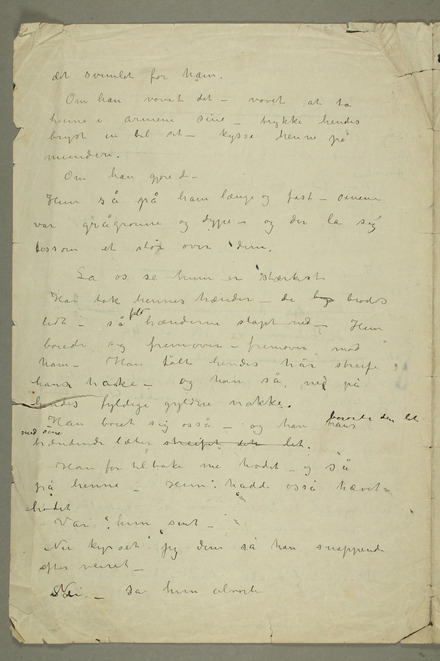 det svimlet for ham.
Om han vovet det – vovet at ta
henne i armene sine – trykke hendes
bryst in til sit – kysse henne på
munden.
Om han gjorde –
Hun så på ham længe og fast – øinene
var grågrønne og dype – og der la sig
lossom et slør over dem.
La os se hvem er stærkest
Han tok hennes hænder – de bødes
lidt – så felt hænderne slapt ned – Hun
boiede sig fremover – fremover mod
ham – Han følte hendes hår streife
hans hake – og han så ned på
hendes fyldige gyldne nakke.
Han boiet sig også – og han berørte den let
med sine
brændende læber streifet det let.
Han for tilbake me hodet – og så
på henne – Hun hadde også hævet
hodet
Var hun sint –
Nu kysset jeg dem så han snappende
efter veiret –
Nei – sa hun alvorlig